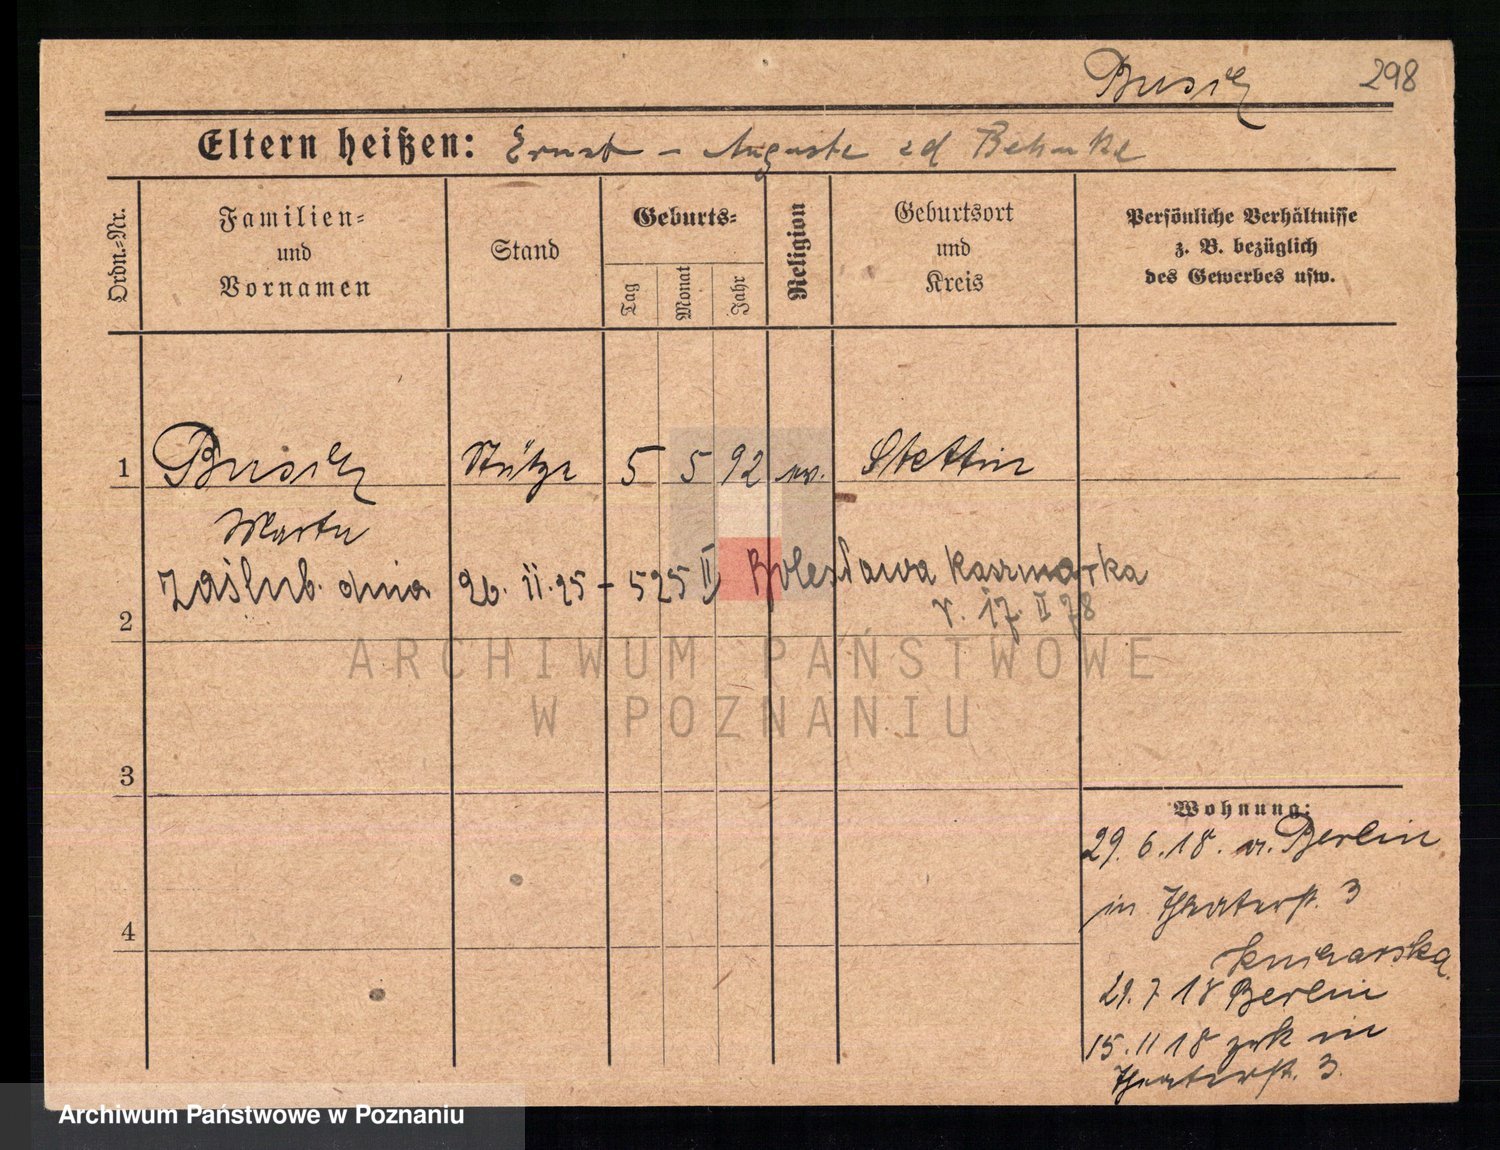 298
Eltern heißen: Ernst – Auguste zd Behnke
Ordn.-Nr.
Familien-
und
Vornamen
Stand
Geburts-
Tag
Monat
Jahr
Religion
Geburtsort
und
Kreis
Persönliche Verhältnisse
z. B. bezüglich
des Gewerbes usw.
1 Stütze 5 5 92 ev. Stettin
zaślub. dnia 26. ii. 25 – 525 II Bolesława Kaczmarka
2 r. 17. II 78
ARCHIWUM PAŃSTWOWE
W POZNANIU
3
Wohnung:
29. 6. 18. v. Berlin
in Theaterstr. 3
4
29. 7 18 Berlin
15. 11 18 zrk in
Theaterstr. 3.
Archiwum Państwowe w Poznaniu